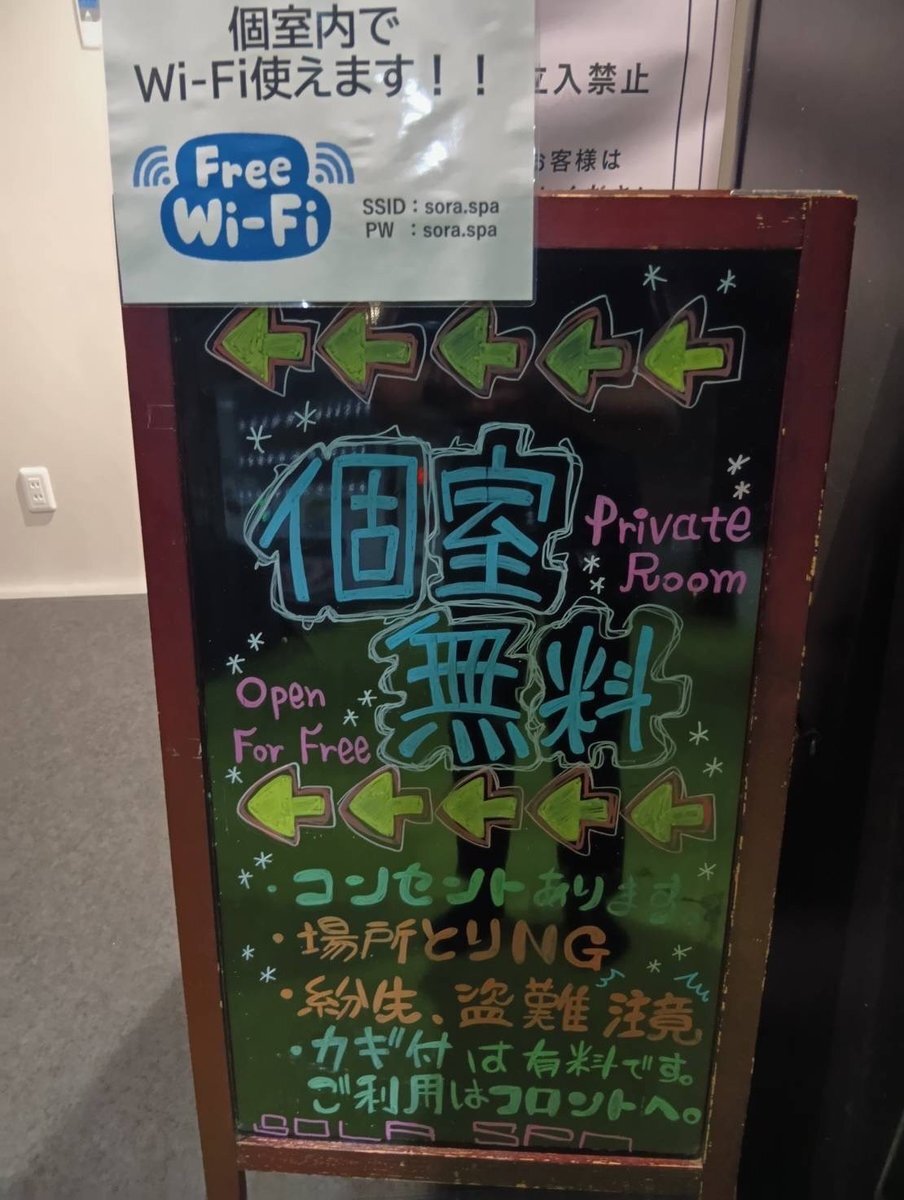 個室内で
Wi-Fi使えます！！
Free
Wi-Fi
SSID：sora.spa
PW ：sora.spa
立入禁止
お客様は
個室
Private
Room
無料
Open
For Free
・コンセントあります。
・場所とりNG
・紛失、盗難注意
・カギ付は有料です。
ご利用はフロントへ。
SOLA SPA